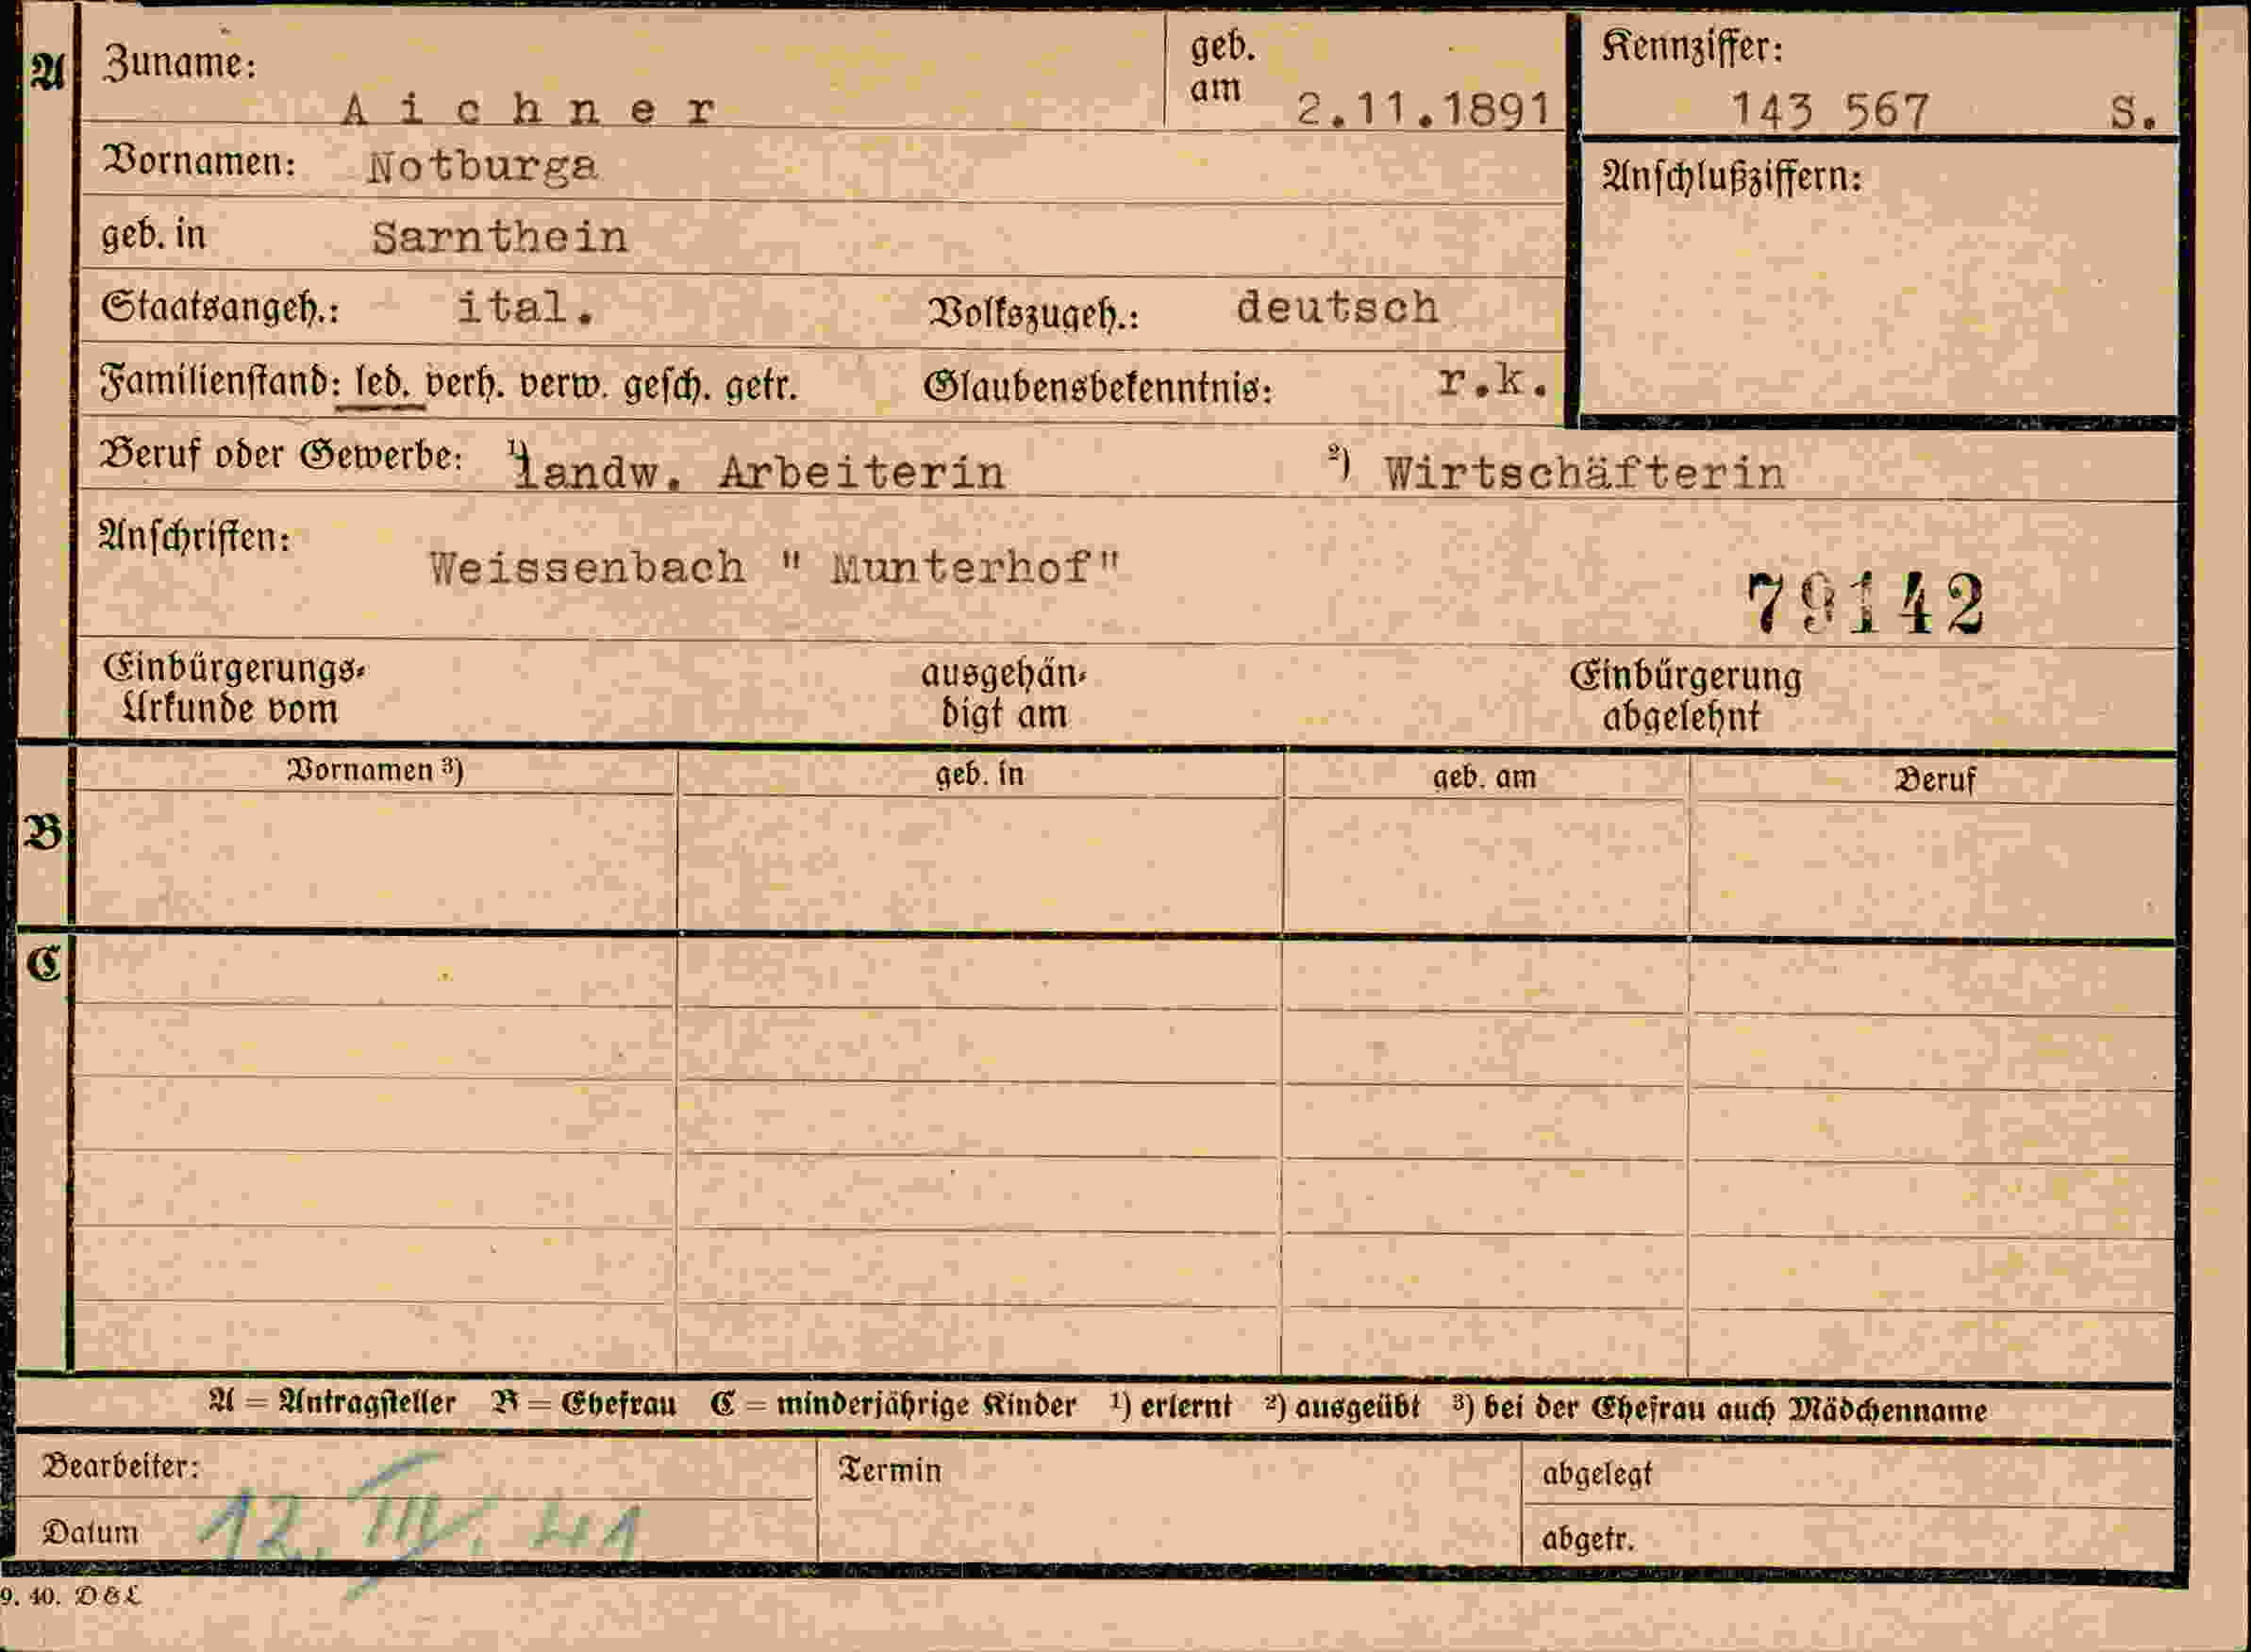 A Zuname: A i c h n e r geb. am 2.11.1891 Kennziffer: 143 567 S.
Vornamen: Notburga Anschlußziffern:
geb. in Sarnthein
Staatsangeh.: ital. Volkszugeh.: deutsch
Familienstand: led. verh. verw. gesch. getr. Glaubensbekenntnis: r.k.
Beruf oder Gewerbe: 1) landw. Arbeiterin 2) Wirtschäfterin
Anschriften: Weissenbach " Munterhof"
79142
Einbürgerungs- ausgehän- Einbürgerung
Urkunde vom digt am abgelehnt
Vornamen 3) geb. in geb. am Beruf
B
C
A = Antragsteller B = Ehefrau C = minderjährige Kinder 1) erlernt 2) ausgeübt 3) bei der Ehefrau auch Mädchenname
Bearbeiter: Termin abgelegt
Datum 12. III. 41 abgetr.
9. 40. D&L